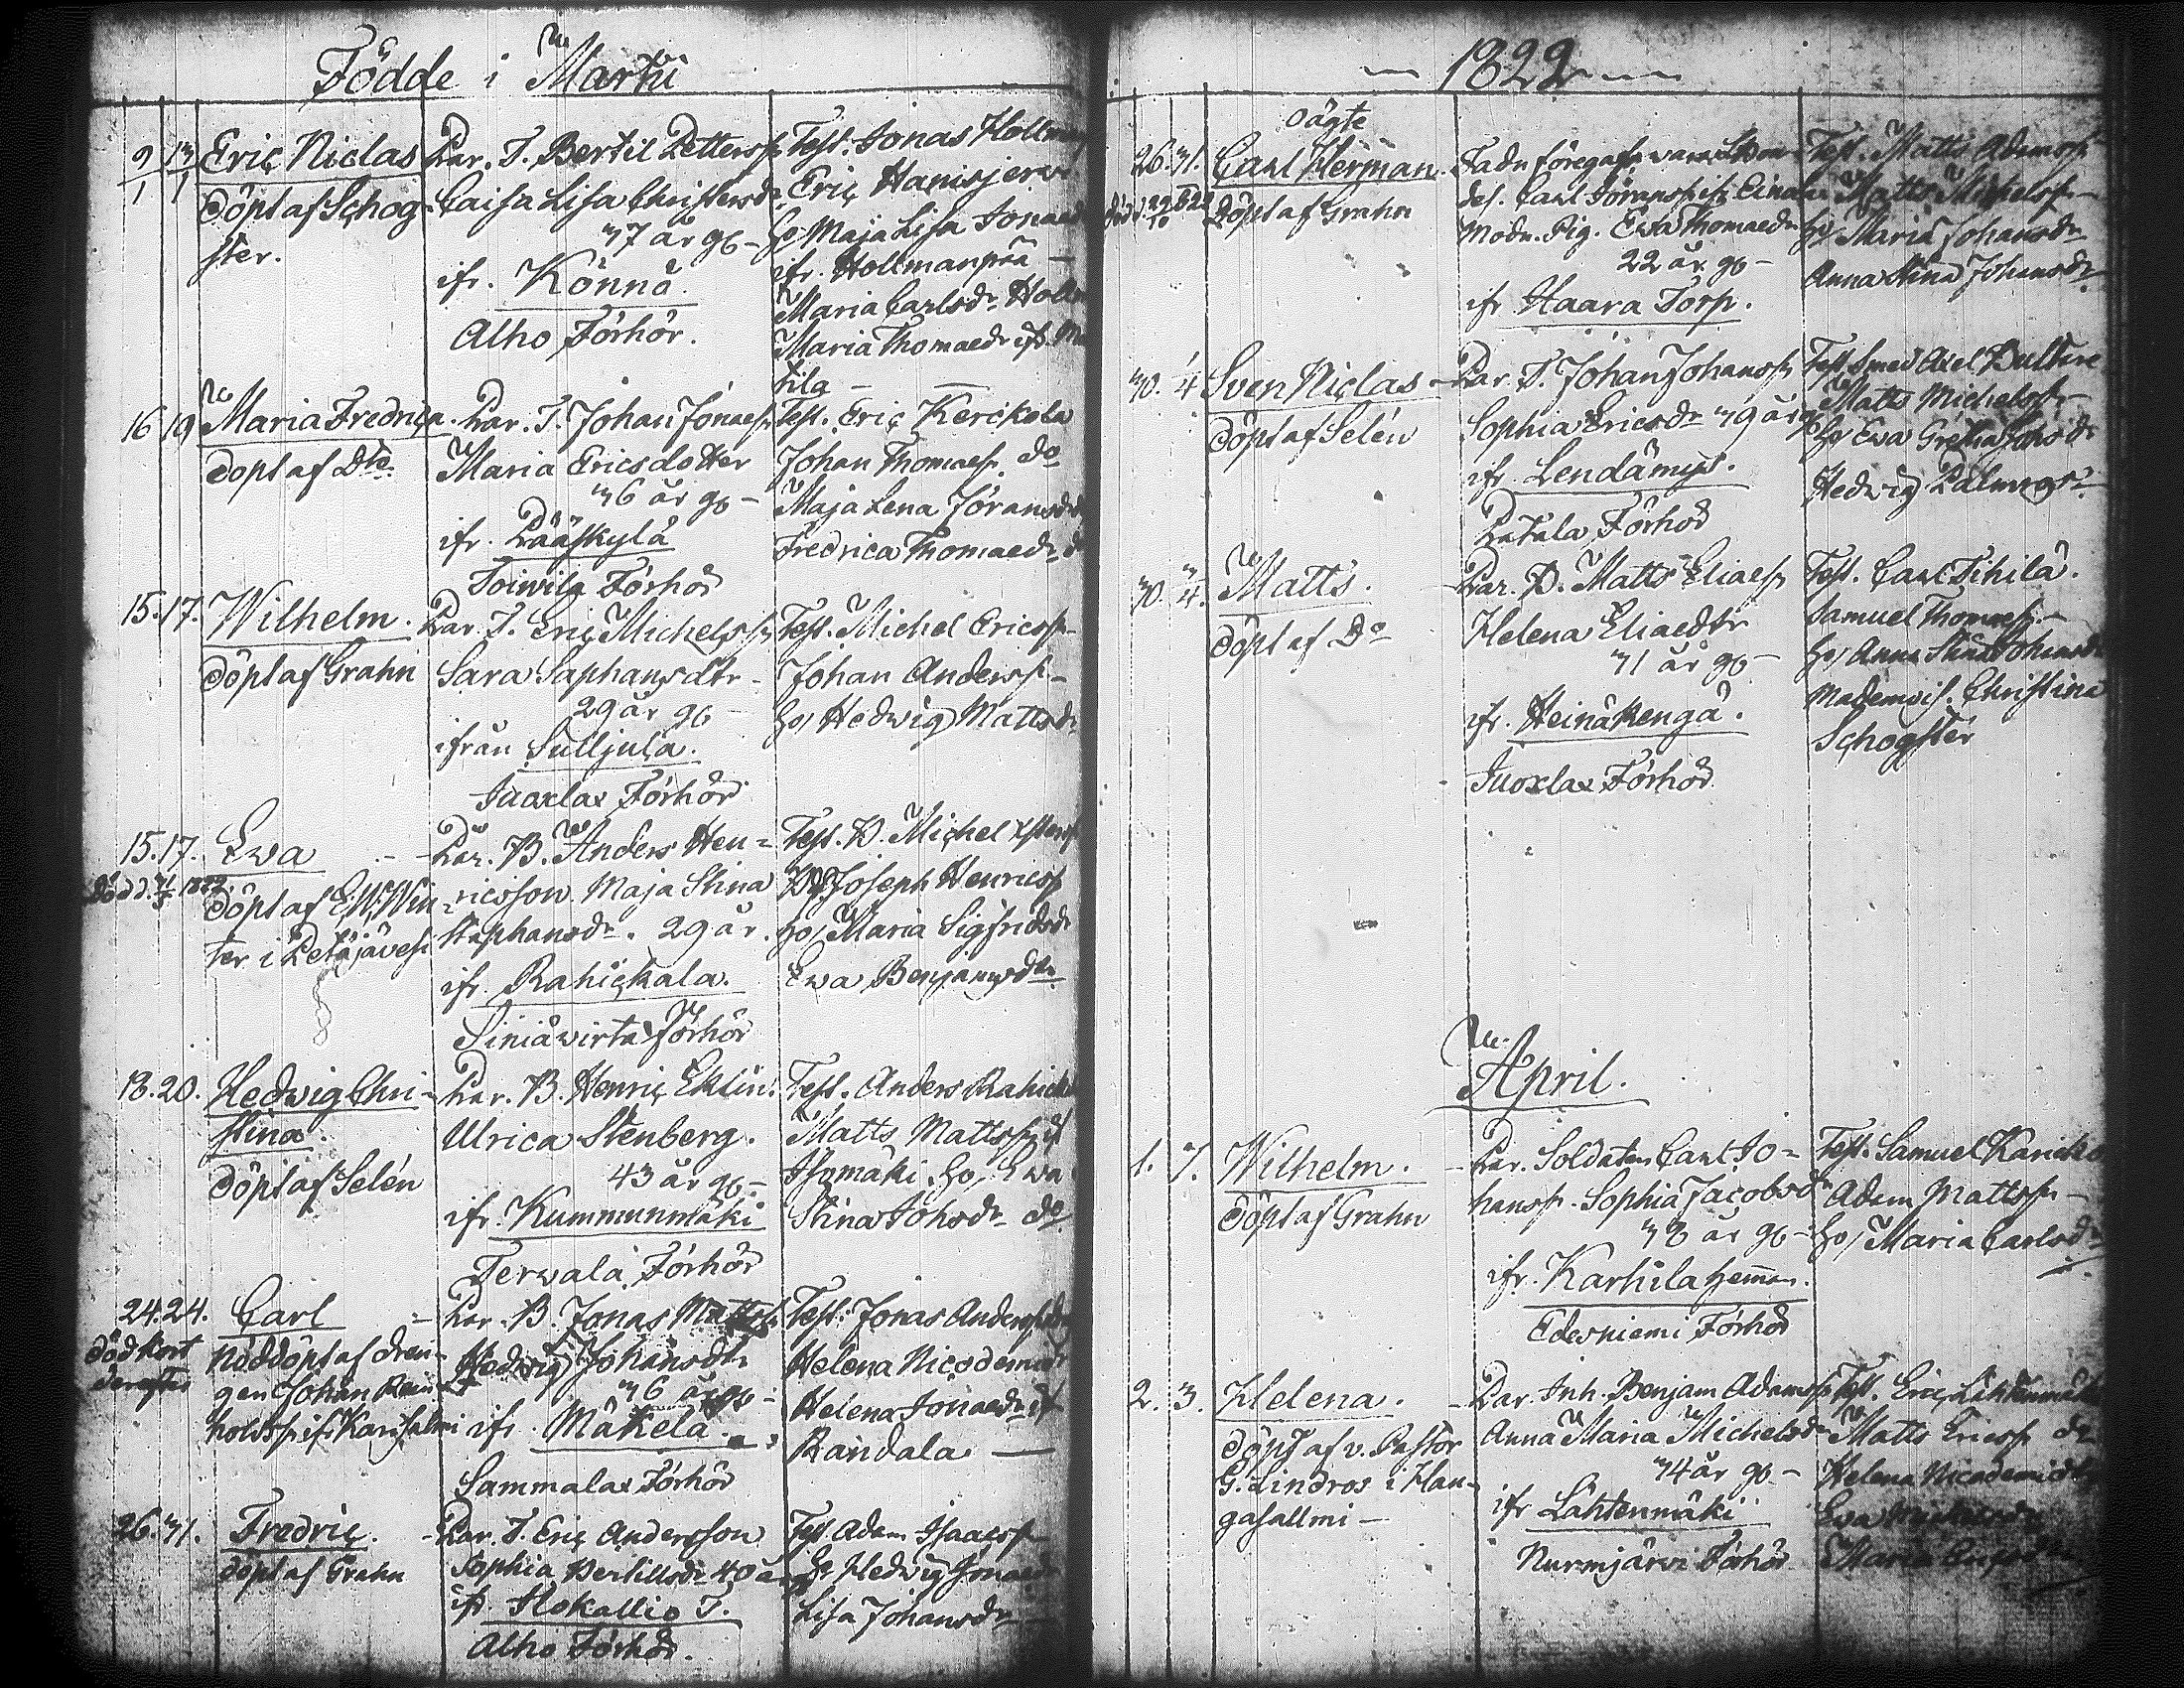 Födde i Martii
9/1 13/1 Eric Niclas
döpt af Schog-
ster.
Par. T. Bertil Petterss.
Caisa Lisa Christersdr
37 år gl -
ifr. Könnö.
Alho Förhör.
Test. Jonas
Eric
ho Maja Lisa
ifr.
Maria Carlsdr
Maria Thomaedr ifr.
tila -
16 19 Maria Fredrica.
döpt af Dto.
Par. T. Johan Jonaess.
Maria Ericsdotter
36 år gl -
ifr. Pääskylä
Toiwila Förhör
Test. Eric Kerckola
Johan Thomaess. do
Maja Lena Göransdr
Fredrica Thomaedr
15. 17. Wilhelm.
döpt af Grahn
Par. T. Eric Michelss.
Sara Saphansdtr -
29 år gl -
ifrån Sulljula.
Juoxlax Förhör
Test. Michel Ericss. -
Johan Anderss. -
ho, Hedwig Mattsdr
15. 17. Ewa
död d. 1822
döpt af E. W. Win-
ter i Petäjävesi
Par. B. Anders Hen-
ricsson. Maja Stina
Staphansdr. 29 år.
ifr. Rahickala.
Siniäwirta Förhör
Test. B. Michel
Joseph Henricss.
ho, Maria Sigfridsdr
Ewa Benjamsdr
18. 20. Hedwig Chri-
stina.
döpt af Selén
Par. B. Henric Eklin.
Ulrica Stenberg.
43 år gl. -
ifr. Kummunmäki
Terwala Förhör
Test. Anders
Matts Mattss. if
Isomäki. ho, Ewa
Stina Johsdr do
24. 24. Carl
död kort
derefter
nöddöpt af dren-
gen Johan Rein-
holdss. ifr. Karisalmi
Par. B. Jonas Mattss.
Hedwig Johansdtr
36 år gl -
ifr. Mäkelä.
Sammalax Förhör
Test. Jonas Anderss.
Helena Nicodemidr
Helena Jonaedr if
Randala -
26. 31. Fredric.
döpt af Grahn
Par. T. Eric Andersson
Sophia Bertillsdr 40 år
ifr. Hokallio T.
Alho Förhör.
Test. Adam Isaacss.
ho Hedwig Jonaedr
Lisa Johansdr
1822
oägte
26. 31. Carl Herman.
död d. 22
döpt af Grahn
Fadn föregafs vara
Carl Göranss. ifr.
Modn. Pig. Ewa Thomaedr
22 år gl -
ifr Haara Torp.
Test. Matts Adamss.
Matts Michelss. -
ho, Maria Johansdr
Anna Stina Johansdr
30. 1/4 Sven Niclas -
döpt af Selén
Par. T. Johan Johanss.
Sophia Ericsdr 39 år gl
ifr. Lendämys.
Patala Förhör
Test. Smed Axel Bultere
Matts Michelss. -
ho, Ewa Greta Johsdr
Hedwig
30. 3/4. Matts.
döpt af Do
Par. B. Matts Eliaess.
Helena Eliaedtr
31 år gl -
ifr. Heinäkengä.
Juoxlax Förhör
Test. Carl Tihilä.
Samuel Thomaess. -
ho, Anna Stina Johansdr
Mademois. Christina
Schogster
April.
1. 7. Wilhelm. -
döpt af Grahn
Par. Soldaten Carl Jo-
hanss. Sophia Jacobsdr
38 år gl -
ifr. Karhila heman.
Edesniemi Förhör
Test. Samuel
Adam Mattss. -
ho, Maria Carlsdr
2. 3. Helena. -
döpt af v. Pastor
G. Lindros i Han-
gasallmi -
Par. Inh. Benjam Adamss.
Anna Maria Michelsdr
34 år gl -
ifr Lahtenmäki
Nurmjärvi Förhör
Test. Eric Lahtenmäki
Matts Ericss. do
Helena Nicodemidtr
Ewa
Maria